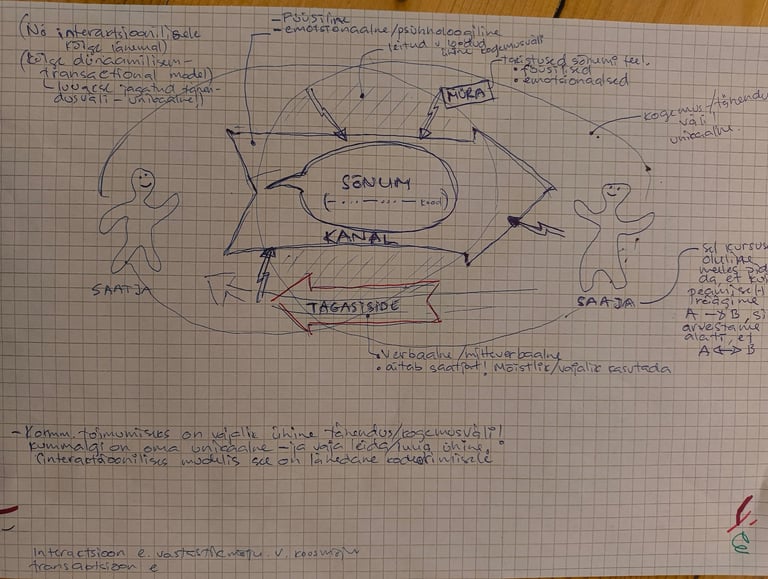 (No interaktsioonilisele
kõige lähemal)
(kõige dünaamilisem-
transactional model)
luuakse jagatud
dusväli - unikaalne)
- FÜÜSILINE
- emotsionaalne/psühholoogiline
leitud v. loodud
ühine kogemusväli
MÜRA
takistused sõnumi teel.
• füüsilised
• emotsionaalsed
kogemus-/tähendu
väli
unikaalne.
SÕNUM
kood)
KANAL
SAATJA
TAGASISIDE
SAAJA
sel kursus
oluline
meeles pid
da, et kui
peamiselt
räägime
A → B, si
arvestame
alati, et
A ↔ B
• Verbaalne/mitteverbaalne
• aitab saatjat! Mõistlik/vajalik kasutada
- Komm. toimumiseks on vajalik ühine tähendus/kogemusväli!
Kummalgi on oma unikaalne - ja vaja leida/luua ühine.
(interaktsioonilises mudelis see on lähedane kodeerimisele
Interaktsioon e. vastastikmõju v. koosmõju
transaktsioon e